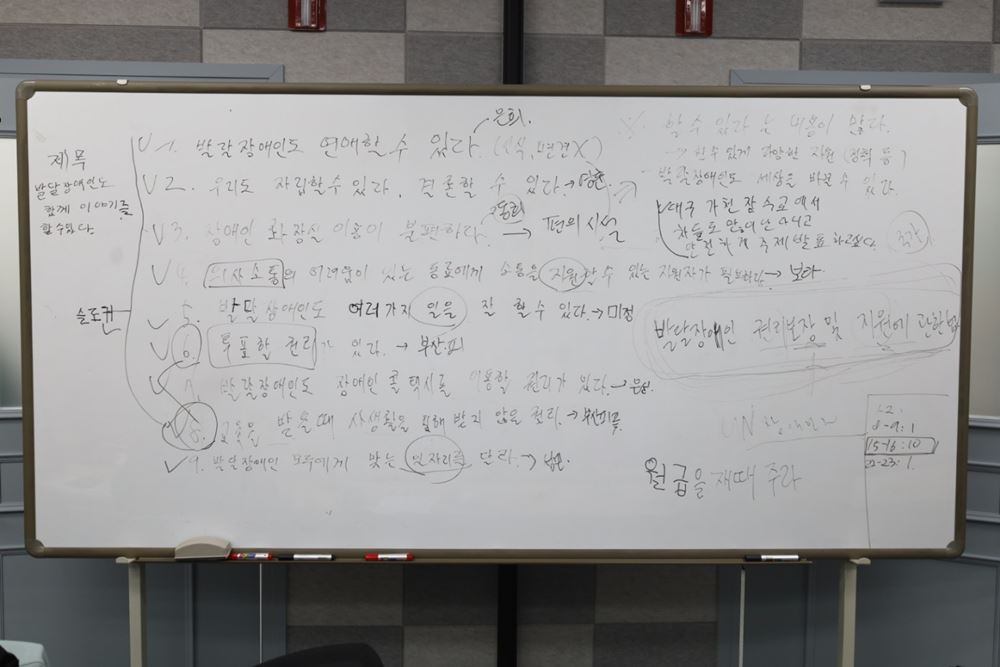 제목
발달장애인도
함께 이야기를
할수있다.
슬로건
문화.
V 1. 발달장애인도 연애할 수 있다. (편견X)
V 2. 우리도 자립할 수 있다. 결혼할 수 있다 →
V 3. 장애인 화장실 이용이 불편하다. → 편의시설
V 4. 의사소통의 어려움이 있는 동료에게 소통을 지원할 수 있는 지원자가 필요하다. → 보라
V 5. 발달장애인도 여러가지 일을 잘 할 수 있다. → 미정
V 6. 투표할 권리가 있다. →
발달장애인도 장애인 콜택시를 이용할 권리가 있다. →
V 8. 교육을 받을때 사생활을 침해 받지 않을 권리. →
V 9. 발달장애인 모두에게 맞는 일자리를 달라. →
※ 할 수 있다 는 내용이 많다.
→ 할 수 있게 다양한 지원 (정책 등)
발달장애인도 세상을 바꿀 수 있다.
대구 가면 잠수교에서
발달장애인 권리보장 및 지원에 관한법
UN
월급을 제때 주라
12:
8-9:1
15-16:10
22-23:1